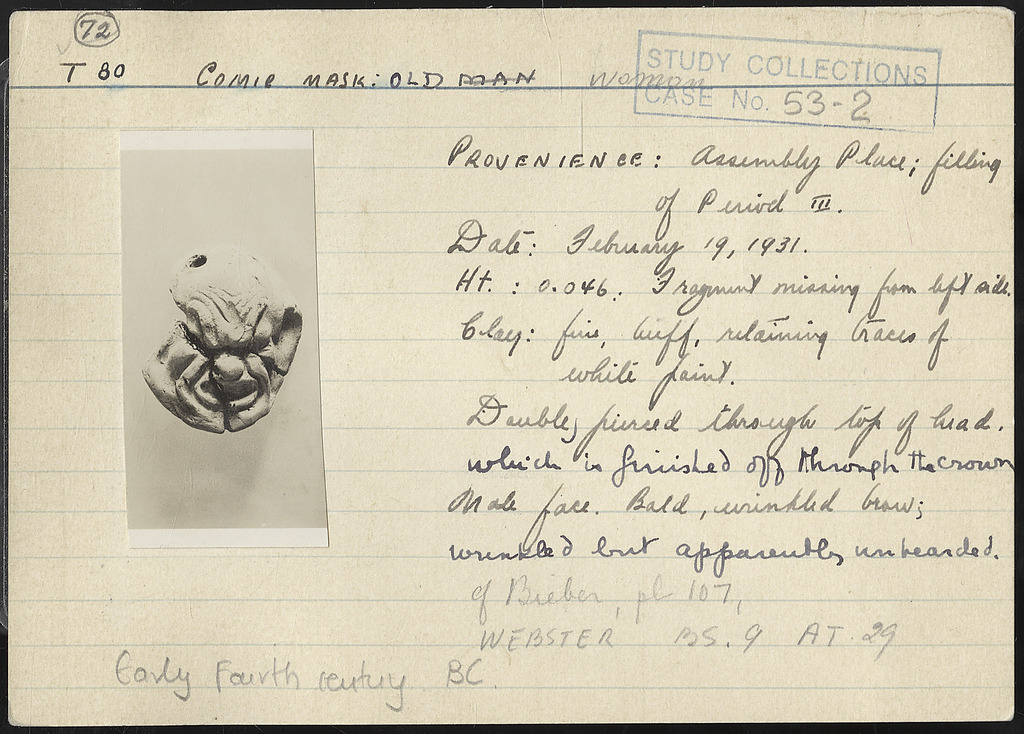 72
T 80 COMIC MASK: OLD MAN Woman
STUDY COLLECTIONS
CASE No. 53-2
PROVENIENCE: Assembly Place; filling
of Period III.
Date: February 19, 1931.
Ht. : 0.046. Fragment missing from left side.
Clay: fine, buff, retaining traces of
white paint.
Doubly pierced through top of head.
which is finished off through the crown
Male face. Bald, wrinkled brow;
wrinkled but apparently unbearded.
cf Bieber, pl 107,
WEBSTER BS. 9 AT. 29
Early Fourth century BC.